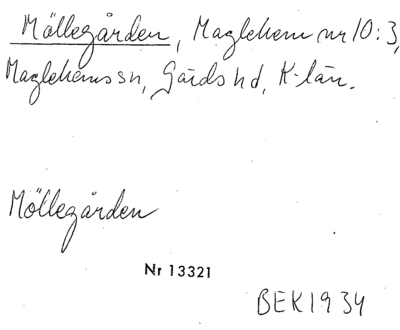 Möllegården, Maglehem nr 10:3,
Maglehems sn, Gärds hd, K-län.
Möllegården
Nr 13321
BEK 1934